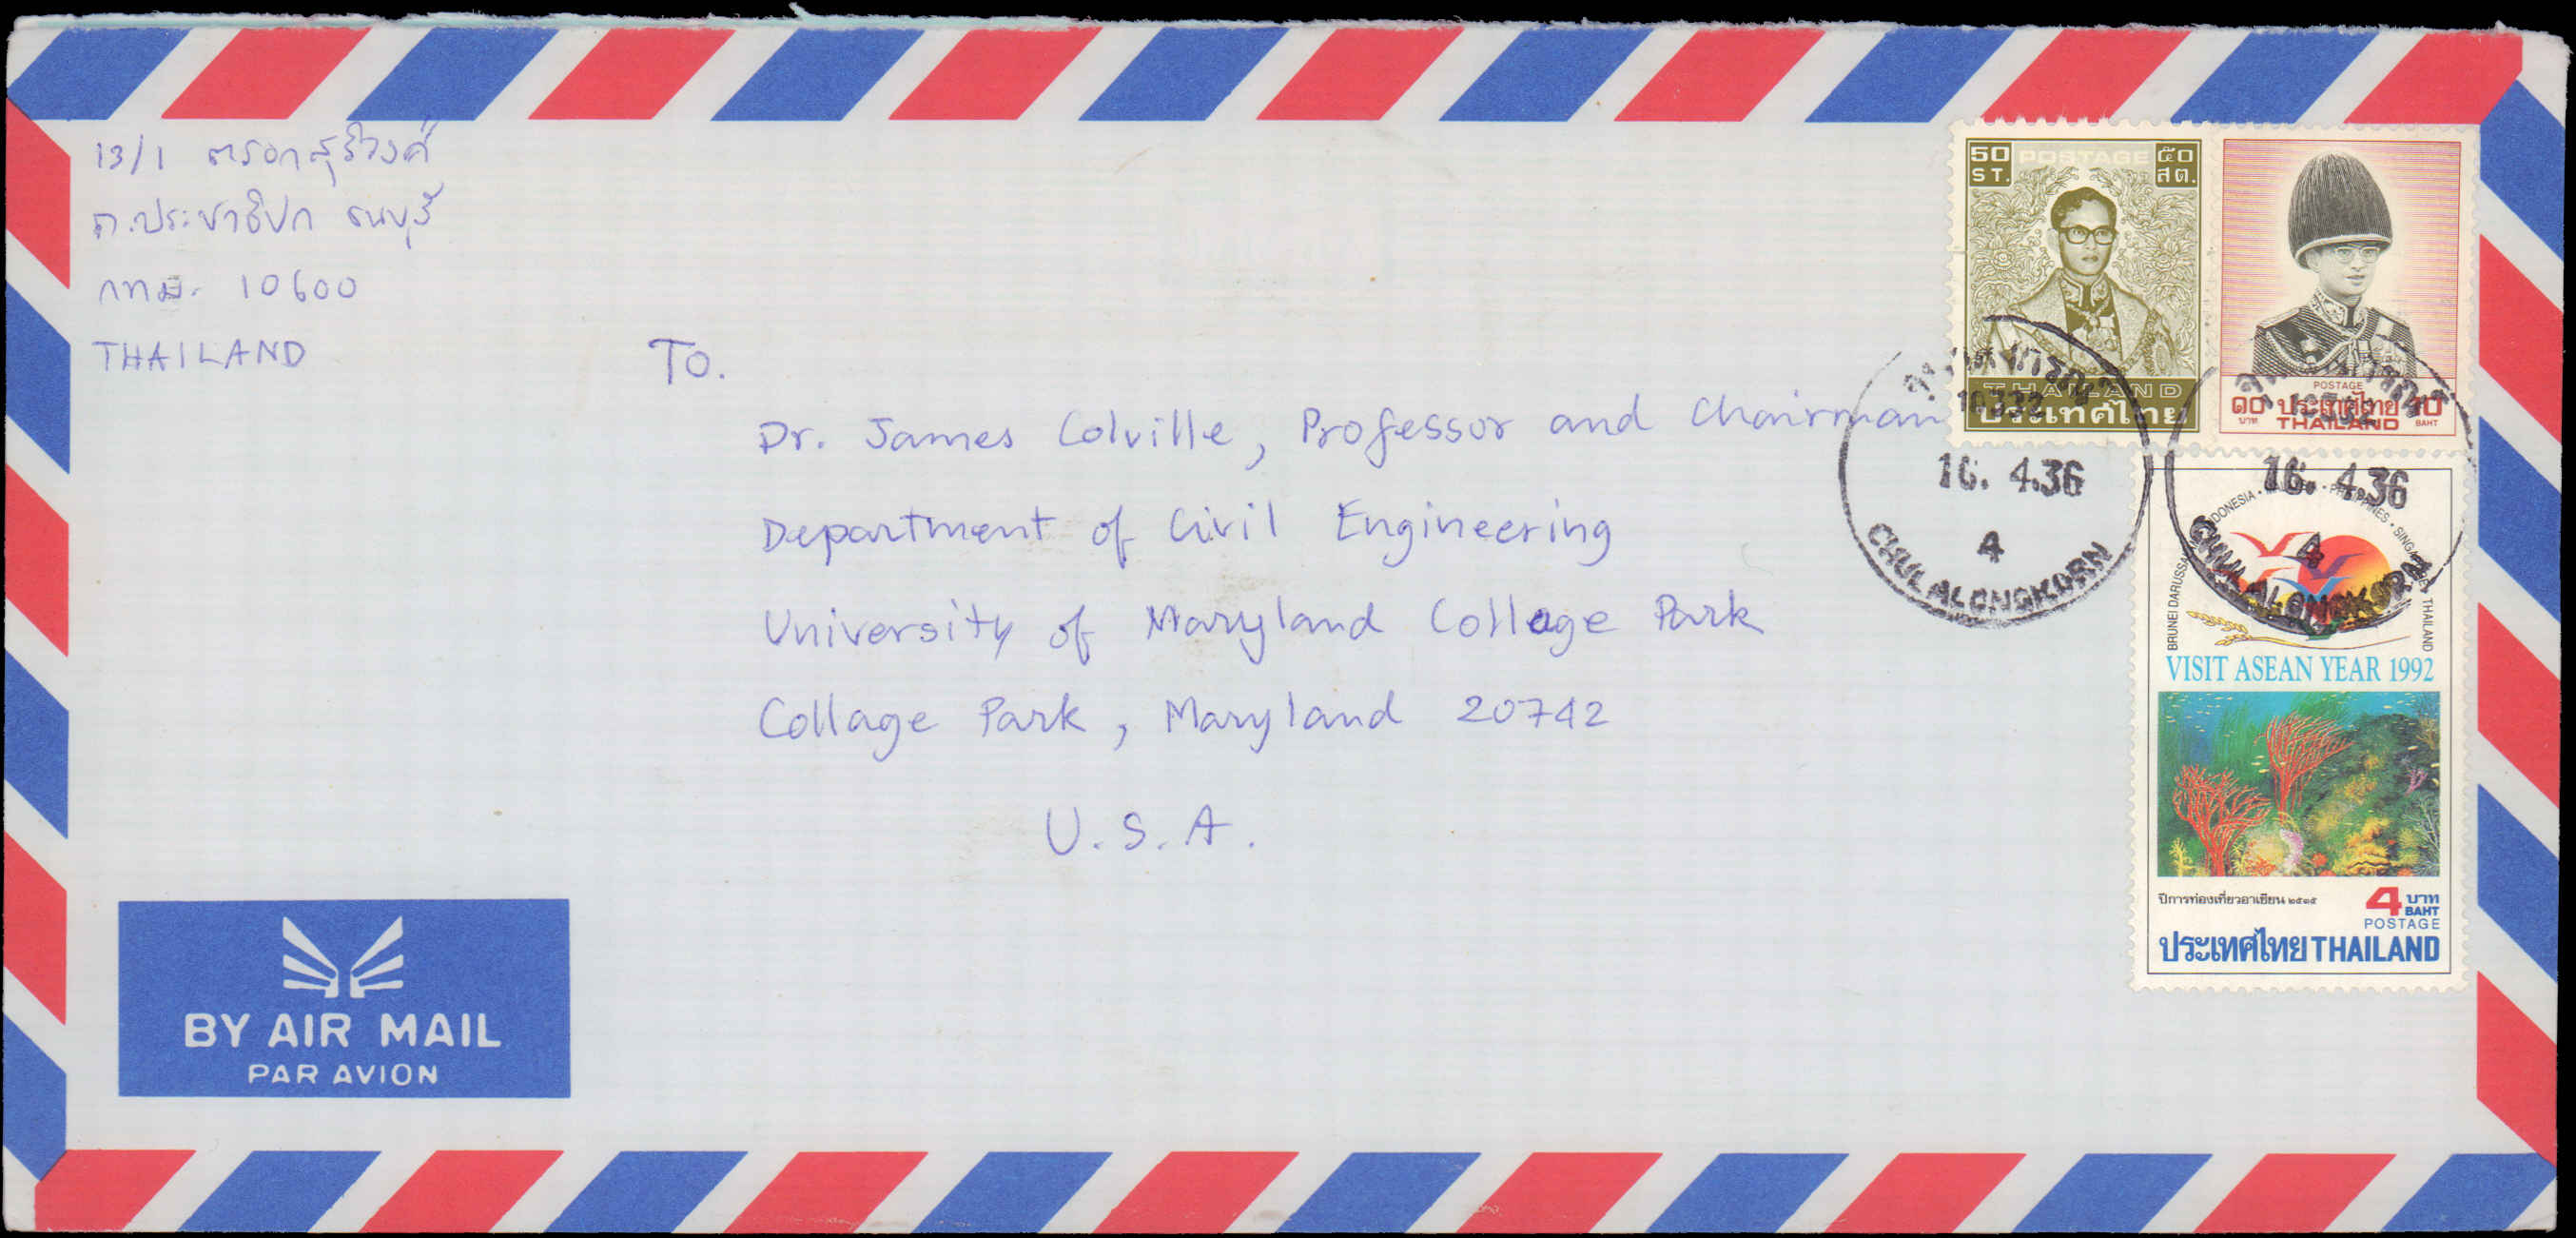 13/1 ตรอกสุริวงศ์
ถ.ประชาธิปก ธนบุรี
กทม. 10600
THAILAND
To.
Dr. James Colville, Professor and Chairman
Department of Civil Engineering
University of Maryland College Park
Collage Park, Maryland 20742
U.S.A.
BY AIR MAIL
PAR AVION
50 ST. POSTAGE ๕๐ สต.
THAILAND
ประเทศไทย
POSTAGE
๑๐ บาท ประเทศไทย 10 BAHT
THAILAND
10332
16. 4.36
4
CHULALONGKORN
16. 4.36
4
CHULALONGKORN
BRUNEI DARUSSALAM INDONESIA PHILIPPINES SINGAPORE THAILAND
VISIT ASEAN YEAR 1992
ปีการท่องเที่ยวอาเซียน ๒๕๓๕
4 บาท BAHT
POSTAGE
ประเทศไทย THAILAND